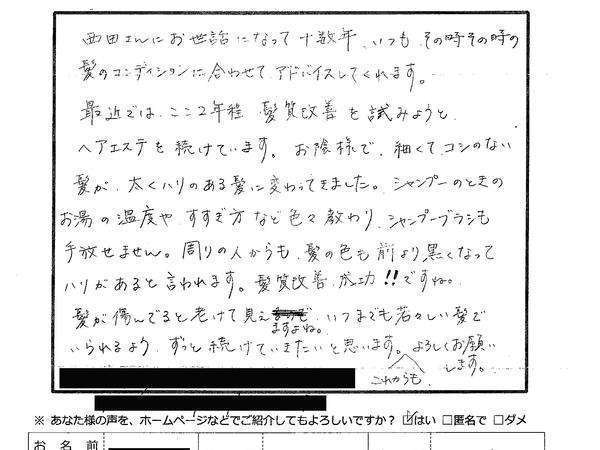 西田さんにお世話になって十数年、いつも その時その時の
髪のコンディションに合わせて アドバイスしてくれます。
最近では、ここ2年程 髪質改善を試みようと、
ヘアエステを続けています。お陰様で、細くてコシのない
髪が、太くハリのある髪に変わってきました。シャンプーのときの
お湯の温度や、すすぎ方など色々教わり、シャンプーブラシも
手放せません。周りの人からも、髪の色も前より黒くなって
ハリがあると言われます。髪質改善 成功!!ですね。
髪が傷んでると老けて見え
ますよね。いつまでも若々しい髪で
いられるよう、ずっと続けていきたいと思います。よろしくお願い
します。
これからも
※ あなた様の声を、ホームページなどでご紹介してもよろしいですか? ☑はい □匿名で □ダメ
お 名 前